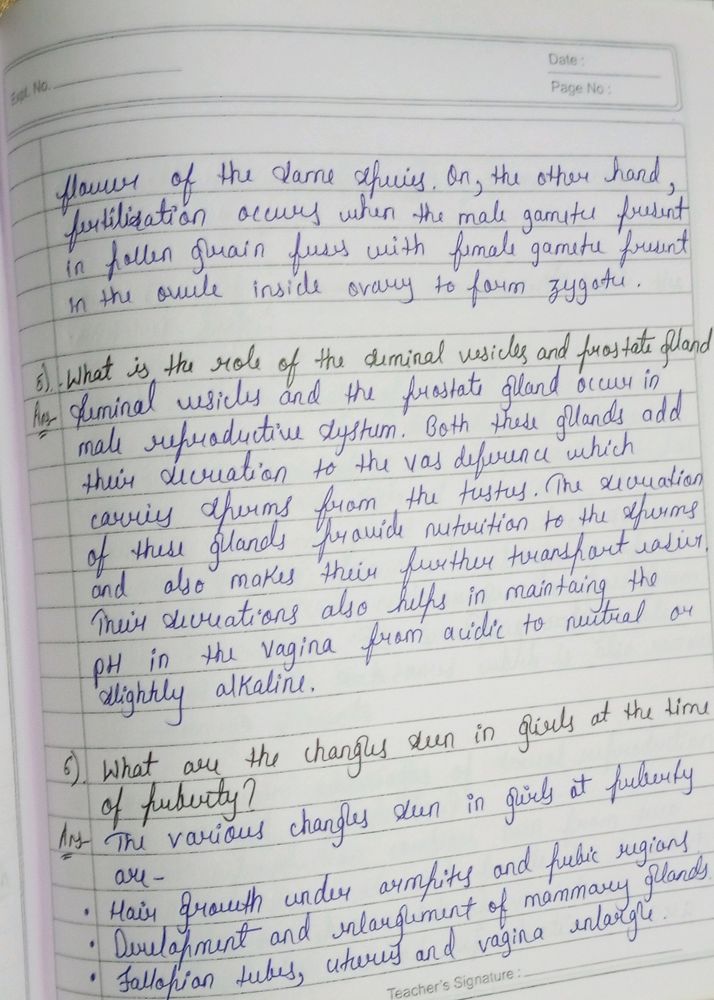 Expt. No.
Date :
Page No :
flower of the same species. On, the other hand,
fertilization occurs when the male gamete present
in pollen grain fuses with female gamete present
in the ovule inside ovary to form zygote.
5). What is the role of the seminal vesicles and prostate gland
Ans Seminal vesicles and the prostate gland occur in
male reproductive system. Both these glands add
their secreation to the vas deference which
carries sperms from the testes. The secreation
of these glands provide nutrition to the sperms
and also makes their further transport easier.
Their secreations also helps in maintaing the
pH in the vagina from acidic to neutral or
slightly alkaline.
6). What are the changes seen in girls at the time
of puberty?
Ans The various changes seen in girls at puberty
are-
• Hair growth under armpits and pubic regions
• Development and enlargement of mammary glands
• Fallopian tubes, uterus and vagina enlarge.
Teacher's Signature :